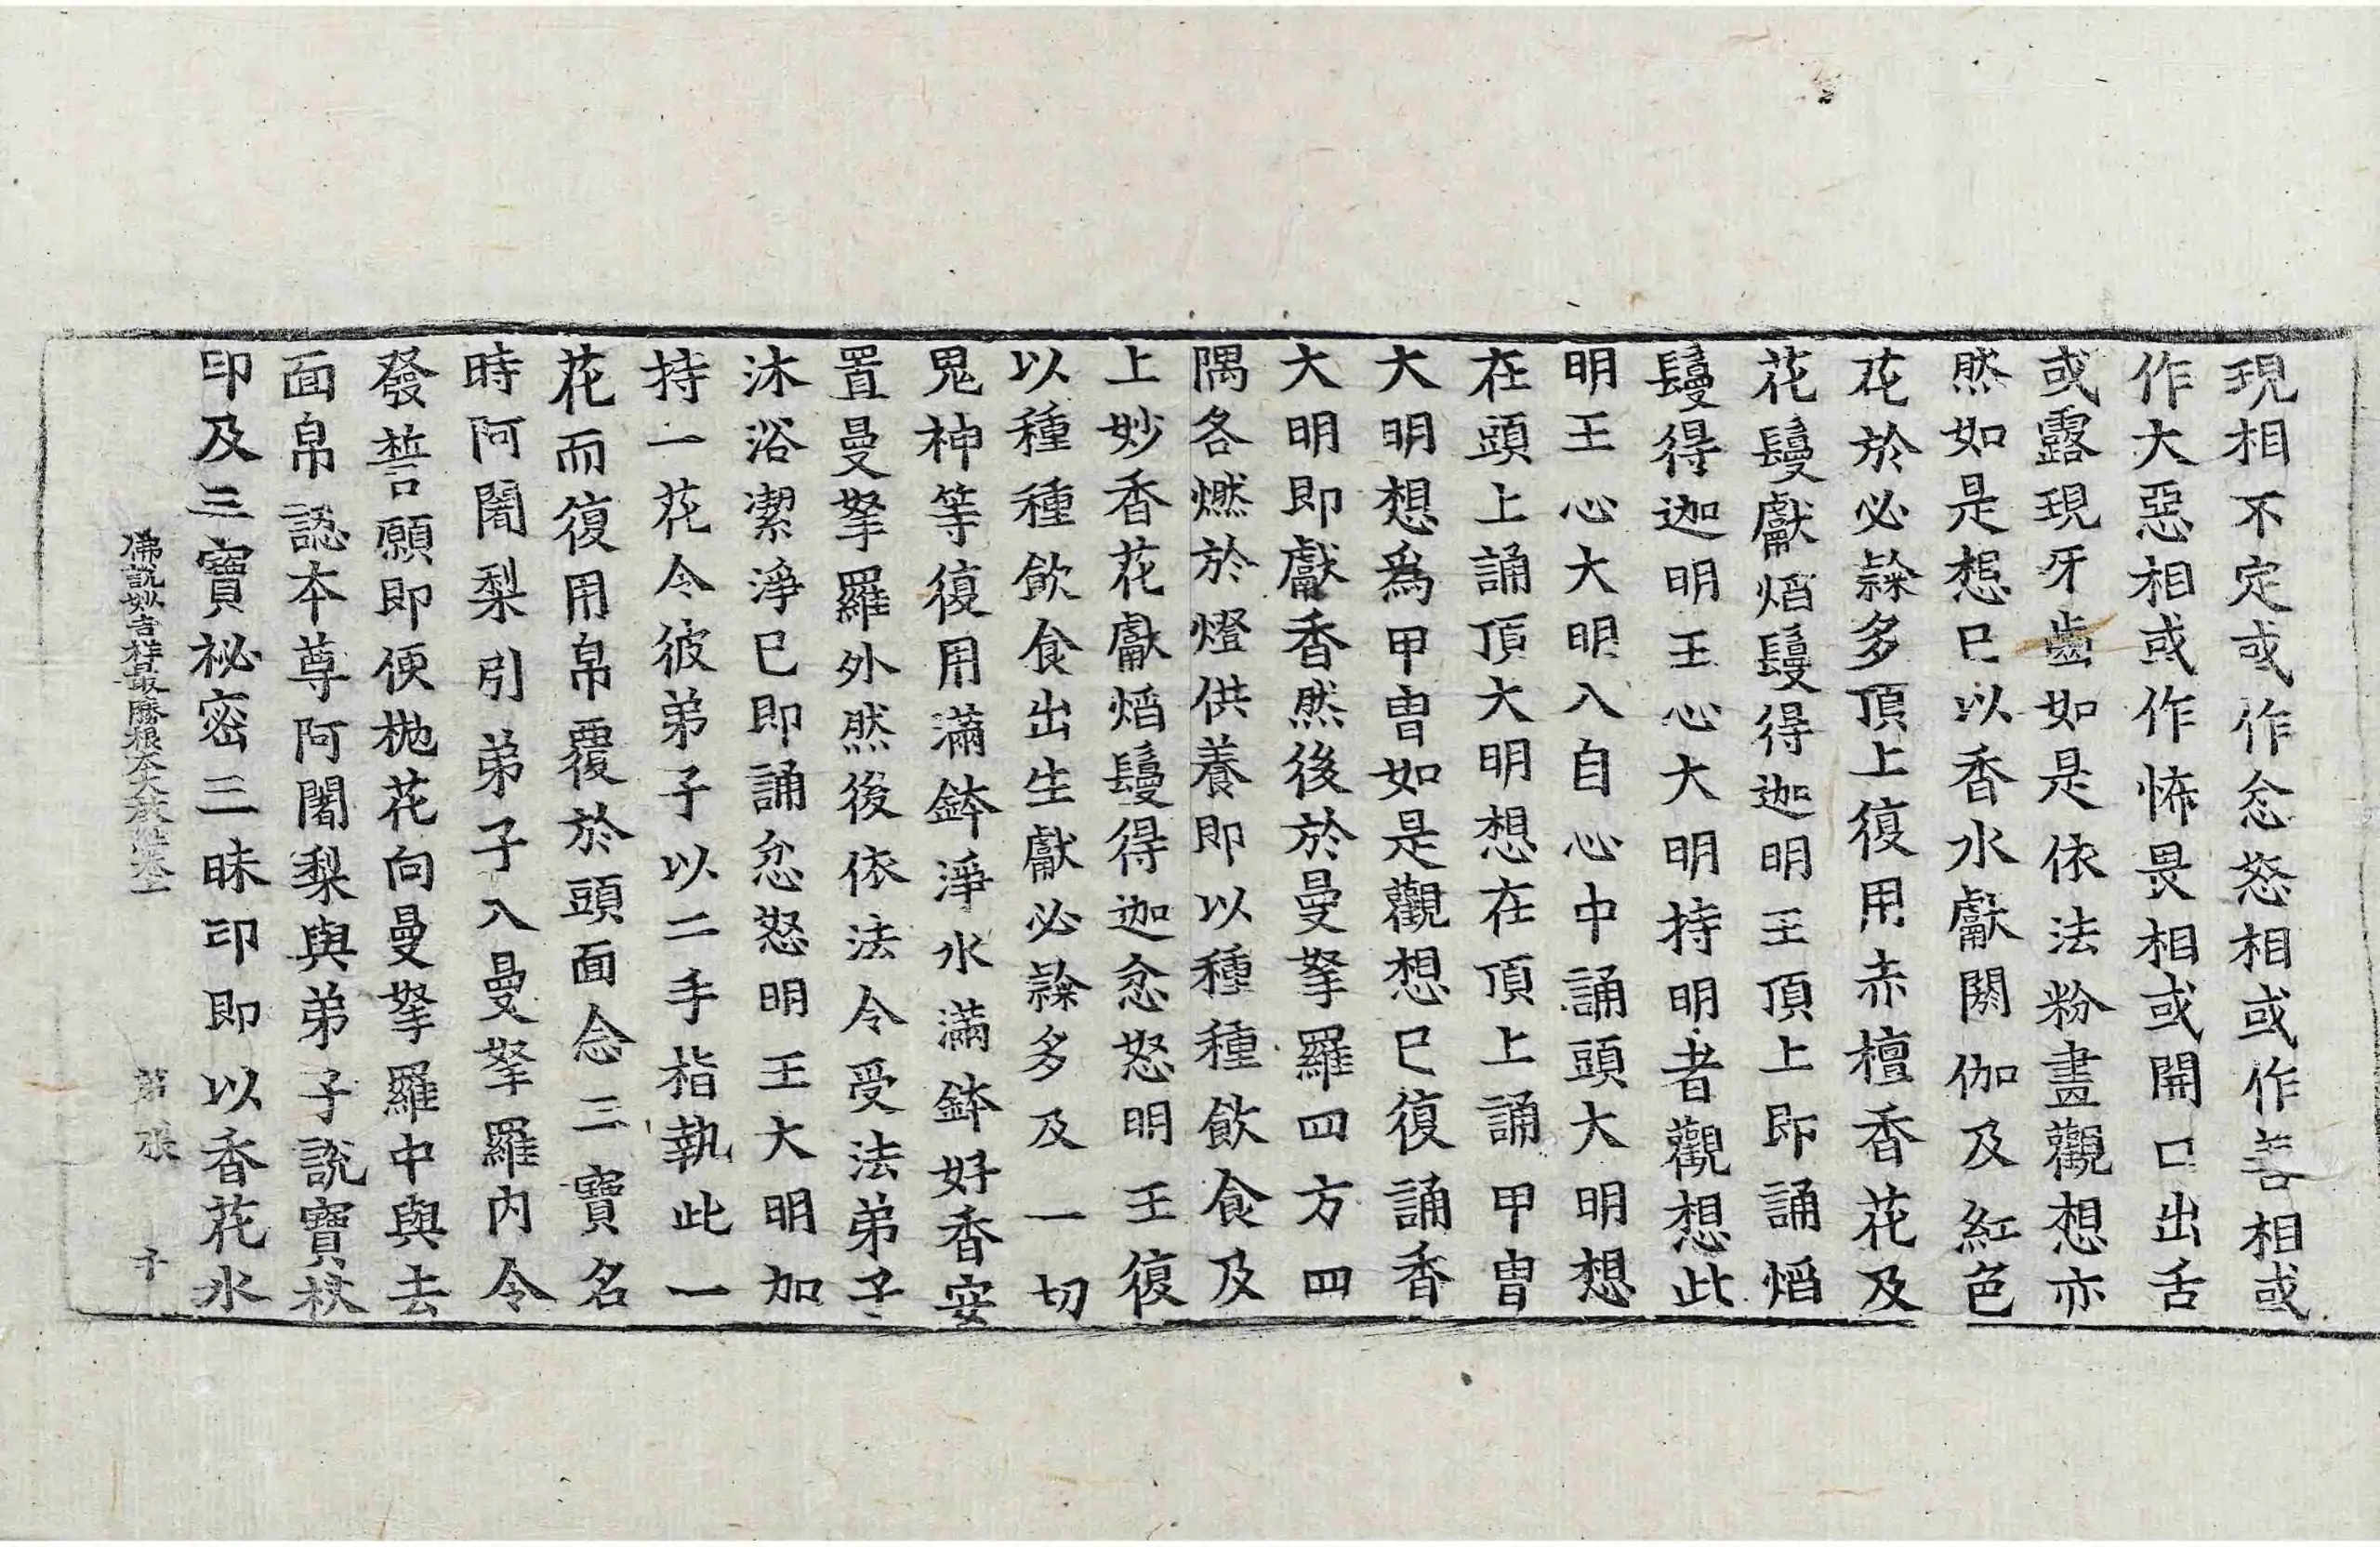 現相不定或作忿怒相或作善相或
作大惡相或作怖畏相或開口出舌
或露現牙齒如是依法粉畫觀想亦
然如是想已以香水獻閼伽及紅色
花於必㘑多頂上復用赤檀香花及
花鬘獻焰鬘得迦明王頂上即誦焰
鬘得迦明王心大明持明者觀想此
明王心大明入自心中誦頭大明想
在頭上誦頂大明想在頂上誦甲冑
大明想爲甲冑如是觀想已復誦香
大明即獻香然後於曼拏羅四方四
隅各燃於燈供養即以種種飲食及
上妙香花獻焰鬘得迦忿怒明王復
以種種飲食出生獻必㘑多及一切
鬼神等復用滿鉢淨水滿鉢好香安
置曼拏羅外然後依法令受法弟子
沐浴潔淨已即誦忿怒明王大明加
持一花令彼弟子以二手指執此一
花而復用帛覆於頭面念三寶名
時阿闍梨引弟子入曼拏羅內令
發誓願即便抛花向曼拏羅中與去
面帛認本尊阿闍梨與弟子說寶杖
印及三寶祕密三昧印即以香花水
佛說妙吉祥最勝根本大教經卷上 第 張